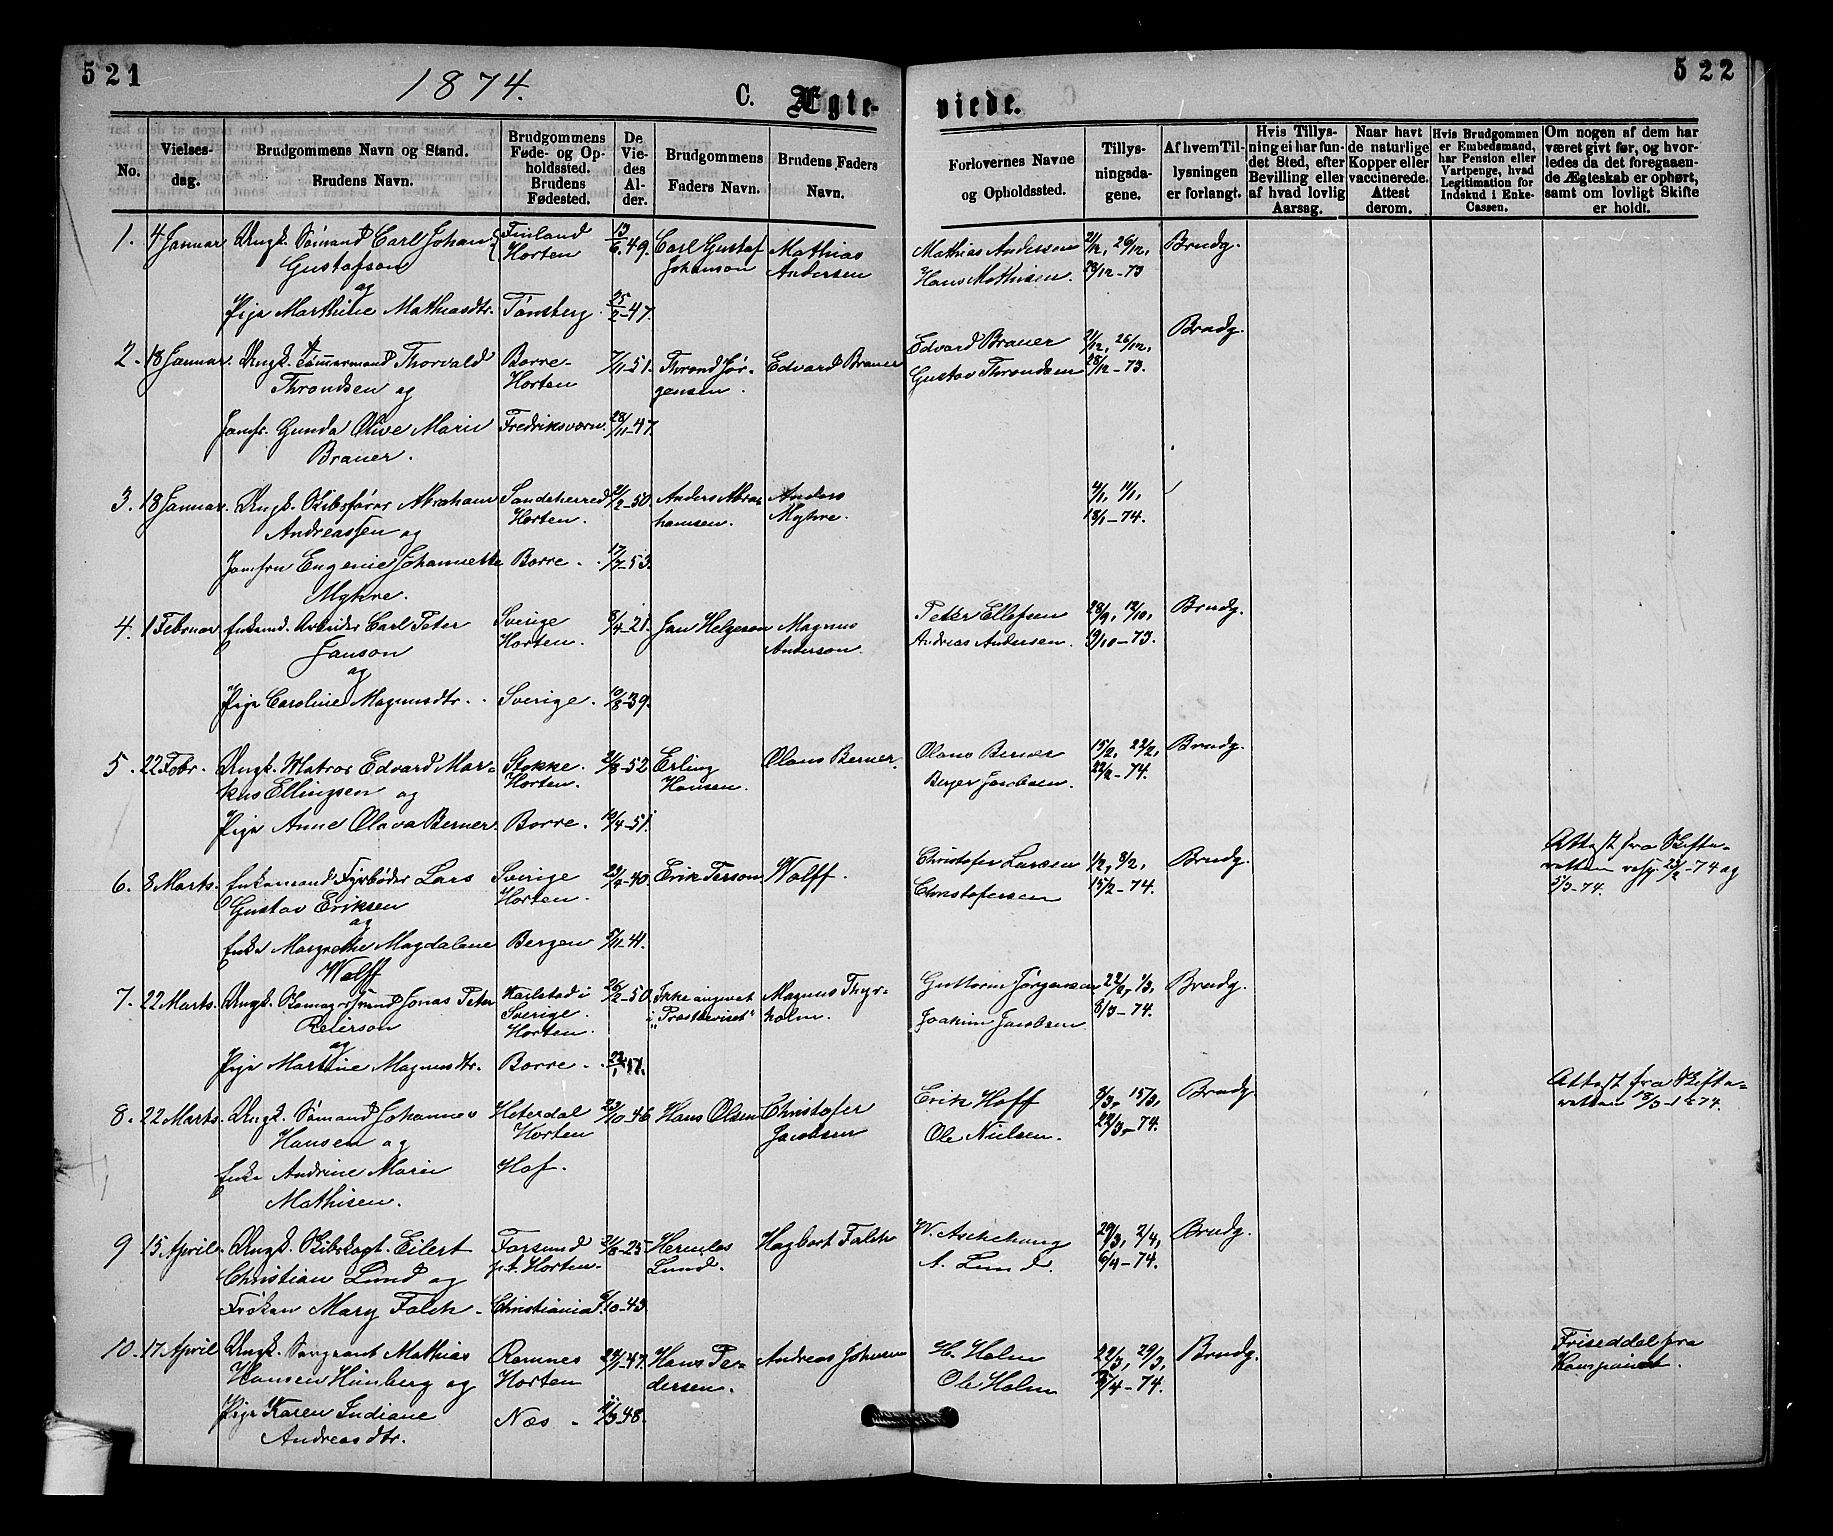 521
1874.
C. Ægte-
viede.
522
No.
Vielses-
dag.
Brudgommens Navn og Stand.
Brudens Navn.
Brudgommens
Føde- og Op-
holdssted.
Brudens
Fødested.
De
Vie-
des
Al-
der.
Brudgommens
Faders Navn.
Brudens Faders
Navn.
Forlovernes Navne
og Opholdssted.
Tillys-
ningsda-
gene.
Af hvem Til-
lysningen
er forlangt.
Hvis Tillys-
ning ei har fun-
det Sted, efter
Bevilling eller
af hvad lovlig
Aarsag.
Naar havt
de naturlige
Kopper eller
vaccinerede.
Attest
derom.
Hvis Brudgommen
er Embedsmand,
har Pension eller
Vartpenge, hvad
Legitimation for
Indskud i Enke-
Cassen.
Om nogen af dem har
været givt før, og hvor-
ledes da det foregaaen-
de Ægteskab er ophørt,
samt om lovligt Skifte
er holdt.
1. 4 Januar Ungk. Sømand Carl Johan Finland 13/6 49. Carl Gustaf Mathias Mathias Andersen 21/12, 26/12, Brudg.
Gustafson Horten Johanson Andersen Hans Mathisen. 28/12-73
og
Pige Marthine Mathiasdtr. Tønsberg. 25/2-47.
2. 18 Januar. Ungk. Tømmermand Thorvald Borre- 7/11-51. Thrond Jør- Edvard Brauer Edvard Brauer 21/12, 26/12, Brudg.
Throndsen og Horten gensen. Gustav Throndsen 28/12-73.
Jomfr. Gunda Olive Marie Fredriksværn. 28/11-47.
Brauer.
3. 18 Januar. Ungk. Skibsfører Abraham Sandeherred 21/2-50. Anders Abra- Anders 4/1, 11/1,
Andreassen og Horten. hamsen. Myhre. 18/1-74.
Jomfru Eugenie Johannette Borre. 17/7-53.
Myhre.
4. 1 Februar Enkemd. Arbeider Carl Peter Sverige 8/4-21. Jan Helgeson Magnus Peter Ellefsen 28/9, 12/10, Brudg.
Janson Horten. Anderson. Andreas Andersen. 19/10-73.
og
Pige Caroline Magnusdtr. Sverige. 10/8-39.
5. 22 Febr. Ungk. Matros Edvard Mar- Stokke. 2/8-52 Erling Olaus Berner. Olaus Berner 15/2, 22/2, Brudg.
kus Ellingsen og Horten. Hansen. Berger Jacobsen. 22/2-74.
Pige Anne Olava Berner. Borre. 10/4-51.
6. 8 Marts. Enkemand Fyrbøder Lars Sverige 23/4-40. Erik Person Wolff. Christofer Larsen 1/2, 8/2, Brudg. Attest fra Skifte-
Gustav Eriksen Horten. Christofersen 15/2-74. retten resp. 23/2-74 og
5/3-74.
og
Enke Margrethe Magdalene Bergen 5/11-41.
Wolff
7. 22 Marts. Ungk. Jonas Peter Karlstad i 26/2-50. Ikke angivet Magnus Thyr- Guttorm Jørgensen 22/2, 1/3, Brudg.
Peterson Sverige. i "Præsteviset" holm. Joakim Jacobsen 8/3-74.
og Horten.
Pige Martine Magnusdtr. Borre.
8. 22 Marts. Ungk. Sømand Johannes Heterdal 23/10-46 Hans Olsen Christofer Erik Hoff 8/3, 15/3, Brudg. Attest fra Skifte-
Hansen og Horten Jacobsen Ole Nielsen. 22/3-74. retten 18/3-1874.
Enke Andrine Marie Hof.
Mathisen.
9 15 April. Ungk. Skibskapt. Eilert Farsund 2/8-25 Herulos Hagbart Falch W. Aschehoug 29/3, 2/4, Brudg.
Christian Lund og p.t. Horten. Lund. A. Lund. 6/4-74.
Frøken Mary Falch Christiania 9/10-43
10. 17 April Ungk. Sergeant Mathias Ramnes 24/1-47. Hans Pe- Andreas Johnsen H. Holm 22/3, 29/3, Brudg. Friseddel fra
Hansen Himberg og Horten dersen. Ole Holm 5/4-74. Kompaniet.
Pige Karen Indiane Næs 11/9-48.
Andreasdtr.